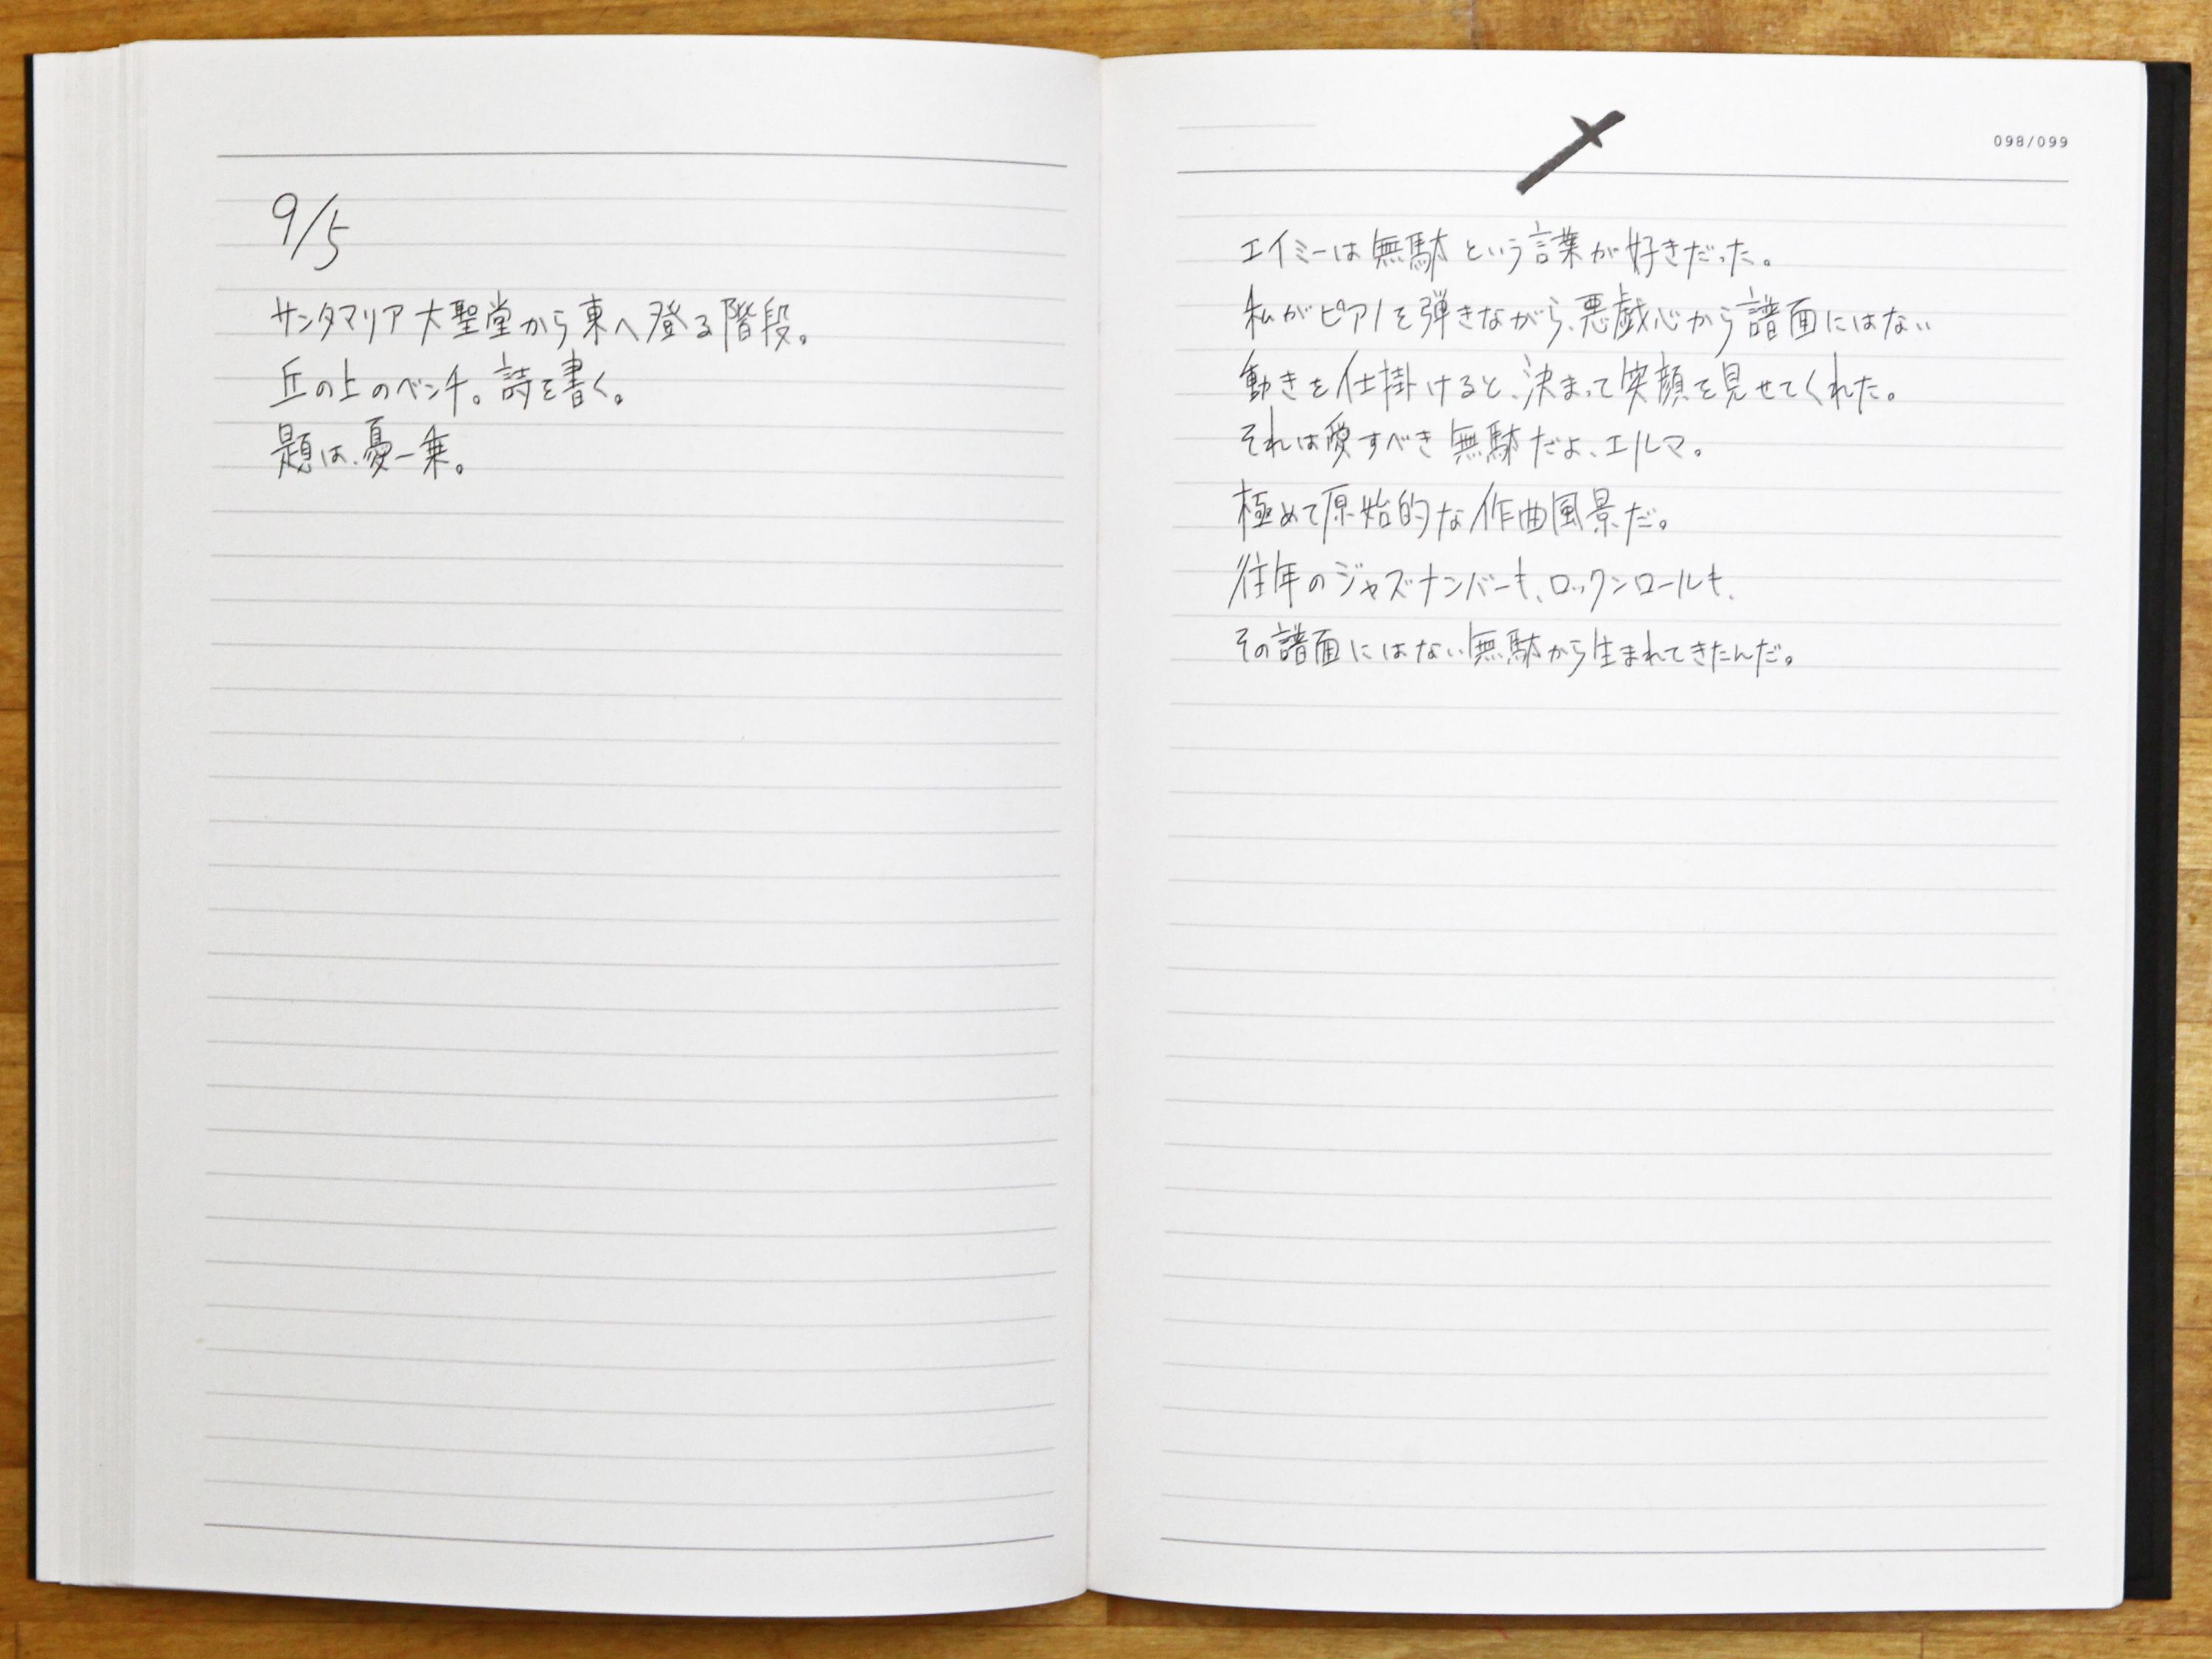 9/5
サンタマリア大聖堂から東へ登る階段。
丘の上のベンチ。詩を書く。
題は、憂一乗。
098/099
エイミーは無駄という言葉が好きだった。
私がピアノを弾きながら、悪戯心から譜面にはない
動きを仕掛けると、決まって笑顔を見せてくれた。
それは愛すべき無駄だよ、エルマ。
極めて原始的な作曲風景だ。
往年のジャズナンバーも、ロックンロールも、
その譜面にはない無駄から生まれてきたんだ。